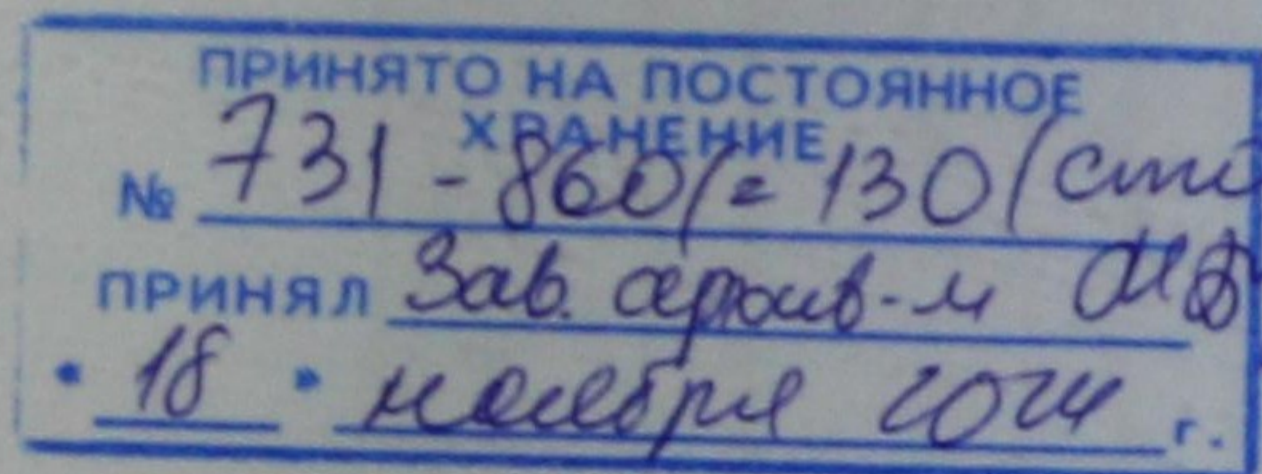 ПРИНЯТО НА ПОСТОЯННОЕ
ХРАНЕНИЕ
№ 731 - 860/= 130 (сто
ПРИНЯЛ Зав. архив-м
" 18 " ноября 2024 г.